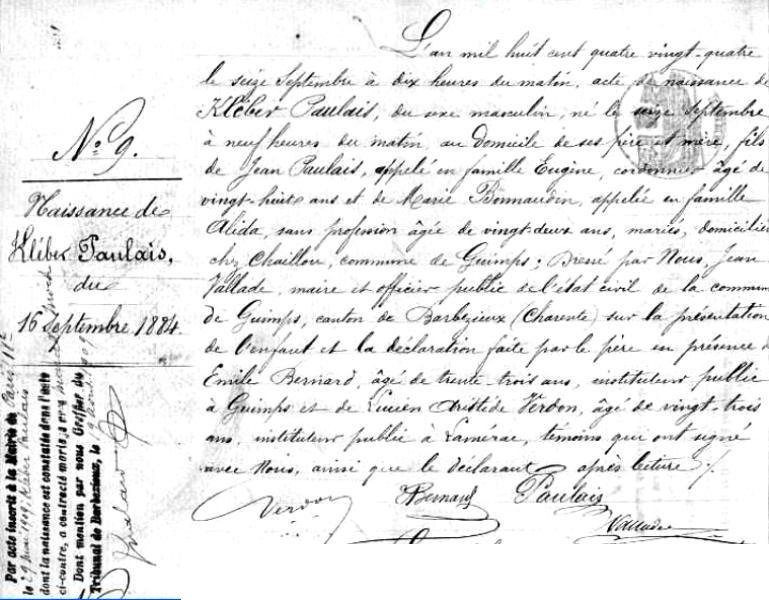 No 9.
Naissance de
Kléber Paulais,
du
16 septembre 1884.
L'an mil huit cent quatre vingt-quatre
le seize Septembre à dix heures du matin, acte de naissance de
Kléber Paulais, du sexe masculin, né le seize Septembre
à neuf heures du matin, au domicile de ses père et mère, fils
de Jean Paulais, appelé en famille Eugène, cordonnier âgé de
vingt-huit ans et de Marie Bonnaudin, appelée en famille
Alida, sans profession âgée de vingt-deux ans, mariés, domiciliés
chez Chaillou, commune de Guimps; Dressé par Nous, Jean
Vallade, maire et officier public de l'état civil de la commun
de Guimps, canton de Barbezieux (Charente) sur la présentation
de l'enfant et la déclaration faite par le père en présence d
Emile Bernard, âgé de trente trois ans, instituteur public
à Guimps et de Lucien Aristide Verdon, âgé de vingt-trois
ans, instituteur public à Lamérac, témoins qui ont signé
avec Nous, ainsi que le déclarant après lecture
Verdon
Bernard
Paulais
Vallade
Par acte inscrit à la Mairie de Paris 11e
le 29 mai 1909, Kléber Paulais
dont la naissance est constatée dans l'acte
ci-contre, a contracté mariage avec
Dont mention par nous Greffier du
Tribunal de Barbezieux, le 1909